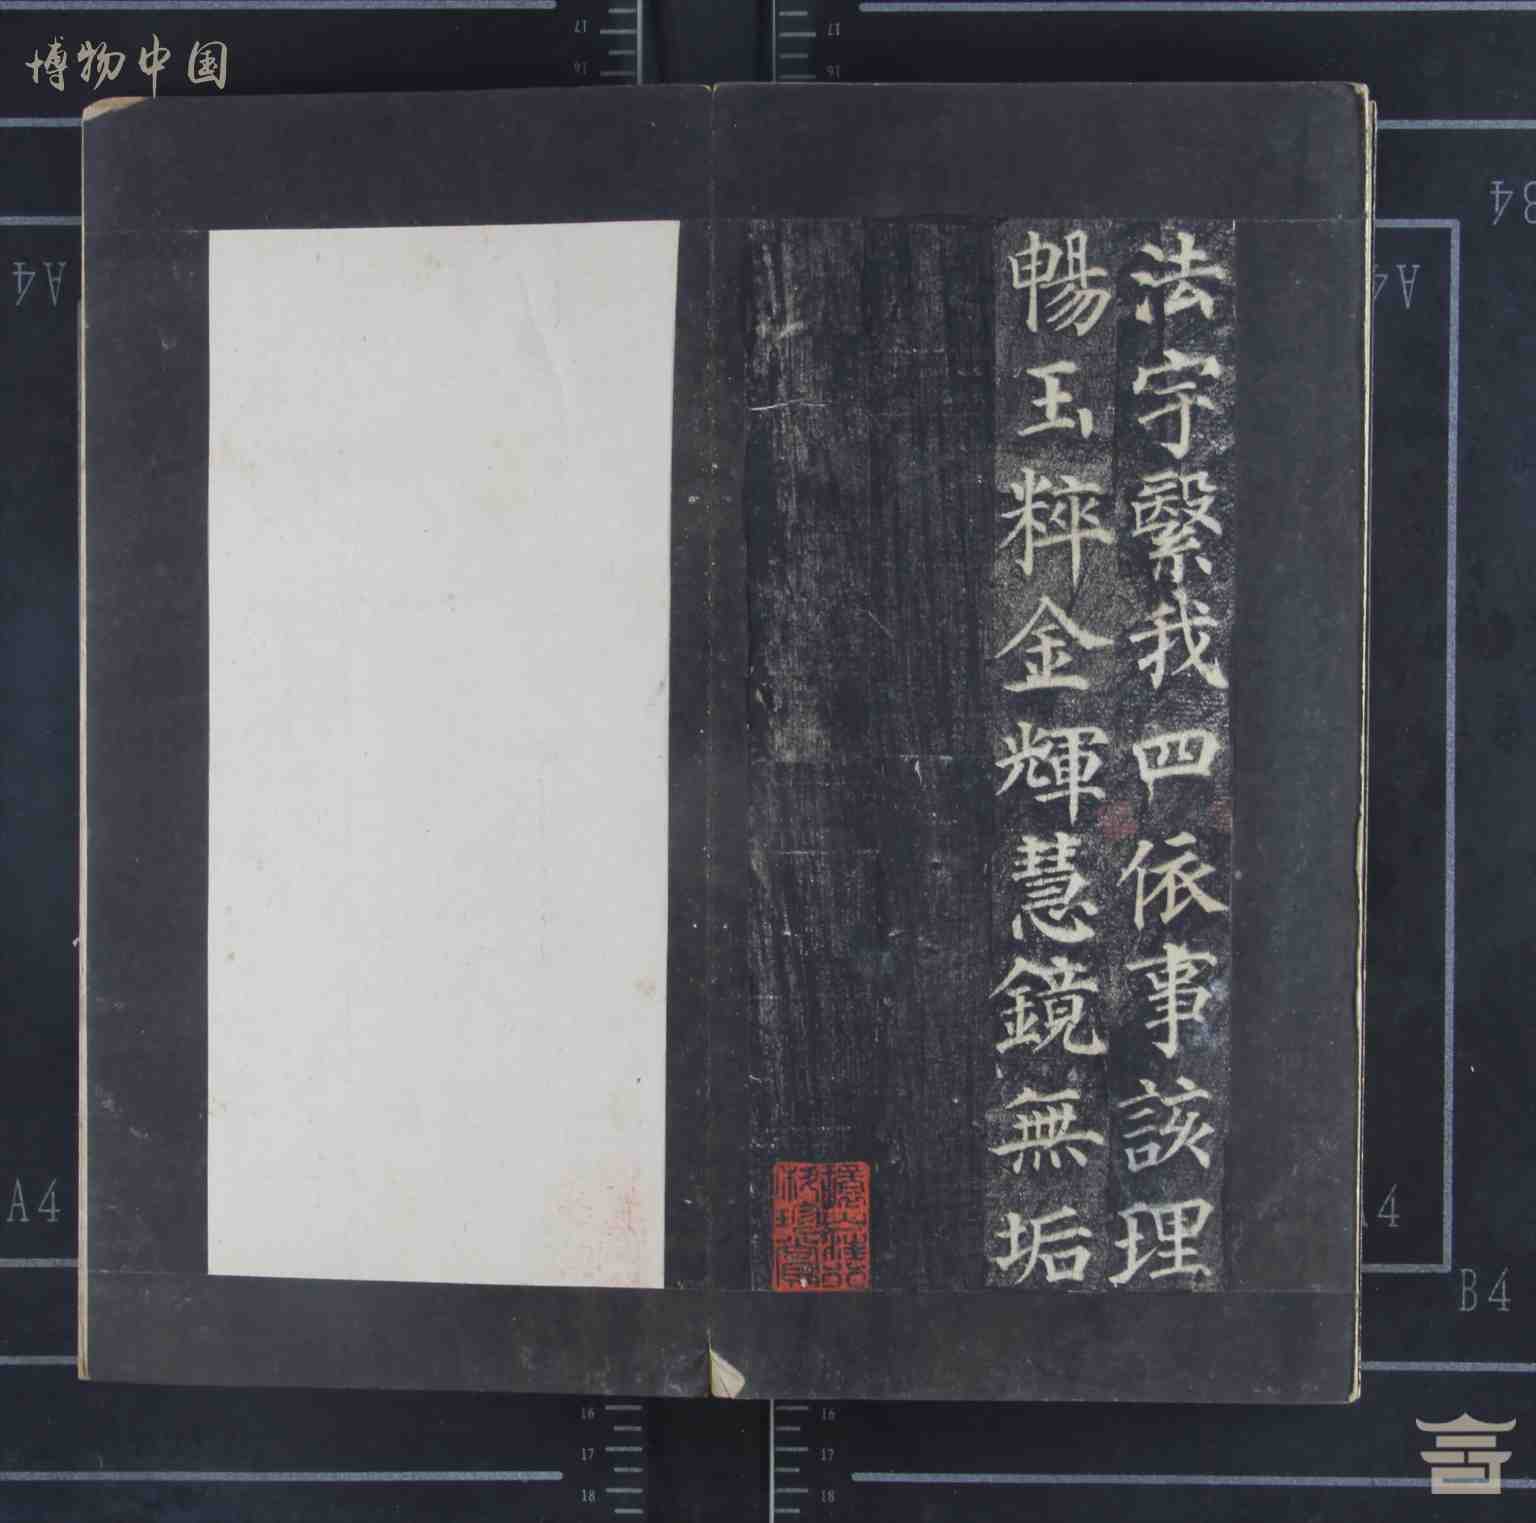 法宇繄我四依事該理
暢玉粹金輝慧鏡無垢
博物中国
A4
A4
A4
A4
B4
B4
17
16
17
16
16
17
18
16
17
18